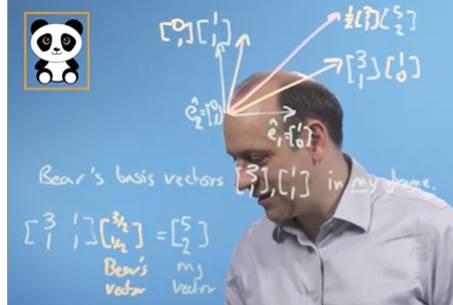 [0 1] [1 1] ½[3 1] [5 2]
[3 1] [1 0]
ê₂=[0 1]
ê₁=[1 0]
Bear's basis vectors [3 1], [1 1] in my frame.
[3 1 1 1] [3/2 1/2] = [5 2]
Bear's my
vector vector